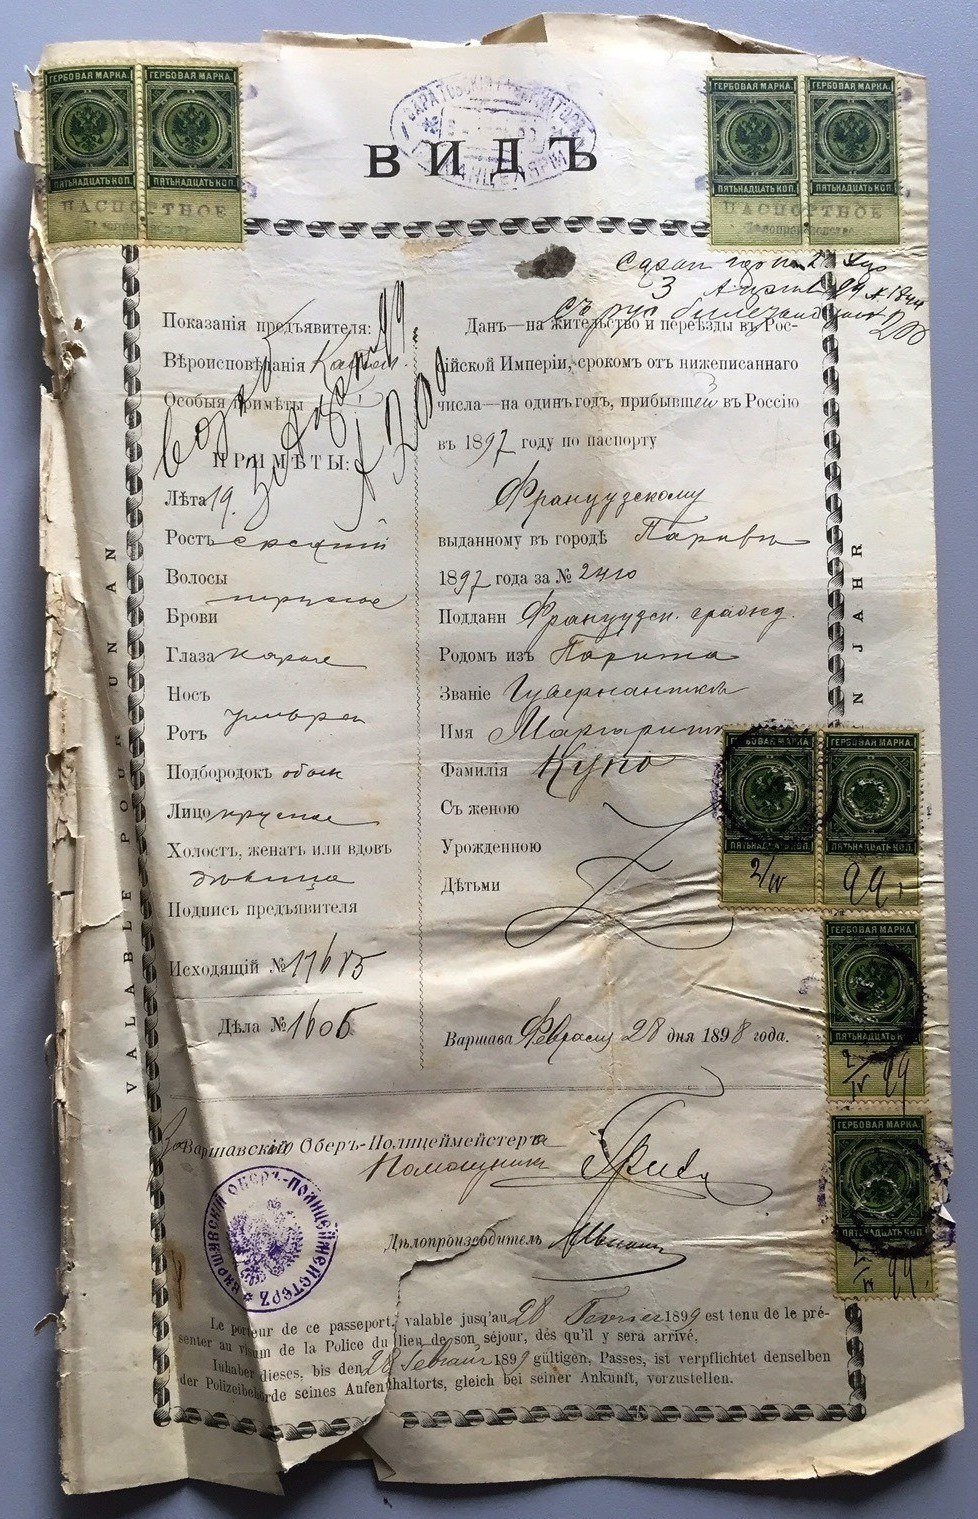 ГЕРБОВАЯ МАРКА.
ПЯТЬНАДЦАТЬ КОП.
ГЕРБОВАЯ МАРКА.
ПЯТЬНАДЦАТЬ КОП.
ПАСПОРТНОЕ
ВИДЪ
ГЕРБОВАЯ МАРКА.
ПЯТЬНАДЦАТЬ КОП.
ГЕРБОВАЯ МАРКА.
ПЯТЬНАДЦАТЬ КОП.
ПАСПОРТНОЕ
Дѣлопроизводство
3 99
200
Показанія предъявителя:
Вѣроисповѣданія
Особыя примѣты
ПРИМѢТЫ:
Лѣта 19.
Ростъ средній
Волосы
Брови
Глаза карые
Носъ
Ротъ
Подбородокъ обык
Лицо круглое
Холостъ, женатъ или вдовъ
дѣвица
Подпись предъявителя
Исходящій № 17685
Дѣла № 1605
Данъ—на жительство и переѣзды въ Рос-
сійской Имперіи, срокомъ отъ нижеписаннаго
числа—на одинъ годъ, прибывшей въ Россію
въ 1897 году по паспорту
Французскому
выданному въ городѣ Парижѣ
1897 года за № 2410
Подданн Французск. гражд.
Родомъ изъ Парижа
Званіе Гувернантка
Имя Маргарит
Фамилія Купо
Съ женою
Урожденною
Дѣтьми
Варшава Февраля 28 дня 1898 года.
ГЕРБОВАЯ МАРКА.
ПЯТЬНАДЦАТЬ КОП.
2/IV
ГЕРБОВАЯ МАРКА.
ПЯТЬНАДЦАТЬ КОП.
99 г.
ГЕРБОВАЯ МАРКА.
ПЯТЬНАДЦАТЬ КОП.
2/IV 99
ГЕРБОВАЯ МАРКА.
ПЯТЬНАДЦАТЬ КОП.
2/IV 99.
За Варшавскаго Оберъ-Полицеймейстера
Помощникъ
Дѣлопроизводитель
ВАРШАВСКІЙ ОБЕРЪ-ПОЛИЦЕЙМЕЙСТЕРЪ
Le porteur de ce passeport, valable jusqu'au 28 Fevrier 1899 est tenu de le pré-
senter au visum de la Police du lieu de son séjour, dés qu'il y sera arrivé.
Inhaber dieses, bis den 28 Februar 1899 gültigen, Passes, ist verpflichtet denselben
der Polizeibehörde seines Aufenthaltorts, gleich bei seiner Ankunft, vorzustellen.
VALABLE POUR UN AN
N JAHR